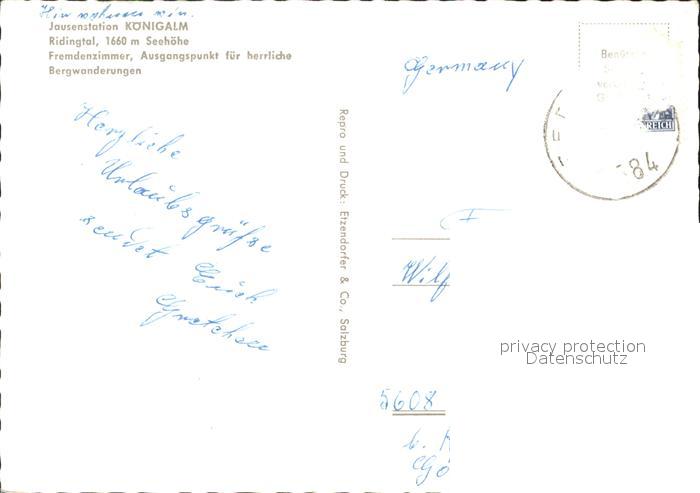 Hier wohnen wir.
Jausenstation KÖNIGALM
Ridingtal, 1660 m Seehöhe
Fremdenzimmer, Ausgangspunkt für herrliche
Bergwanderungen
Herzliche
Urlaubsgrüße
sendet Euch
Gretchen
Repro und Druck: Etzendorfer & Co., Salzburg
Germany
REICH
84
Wilf
5608
b.
Gö
privacy protection
Datenschutz